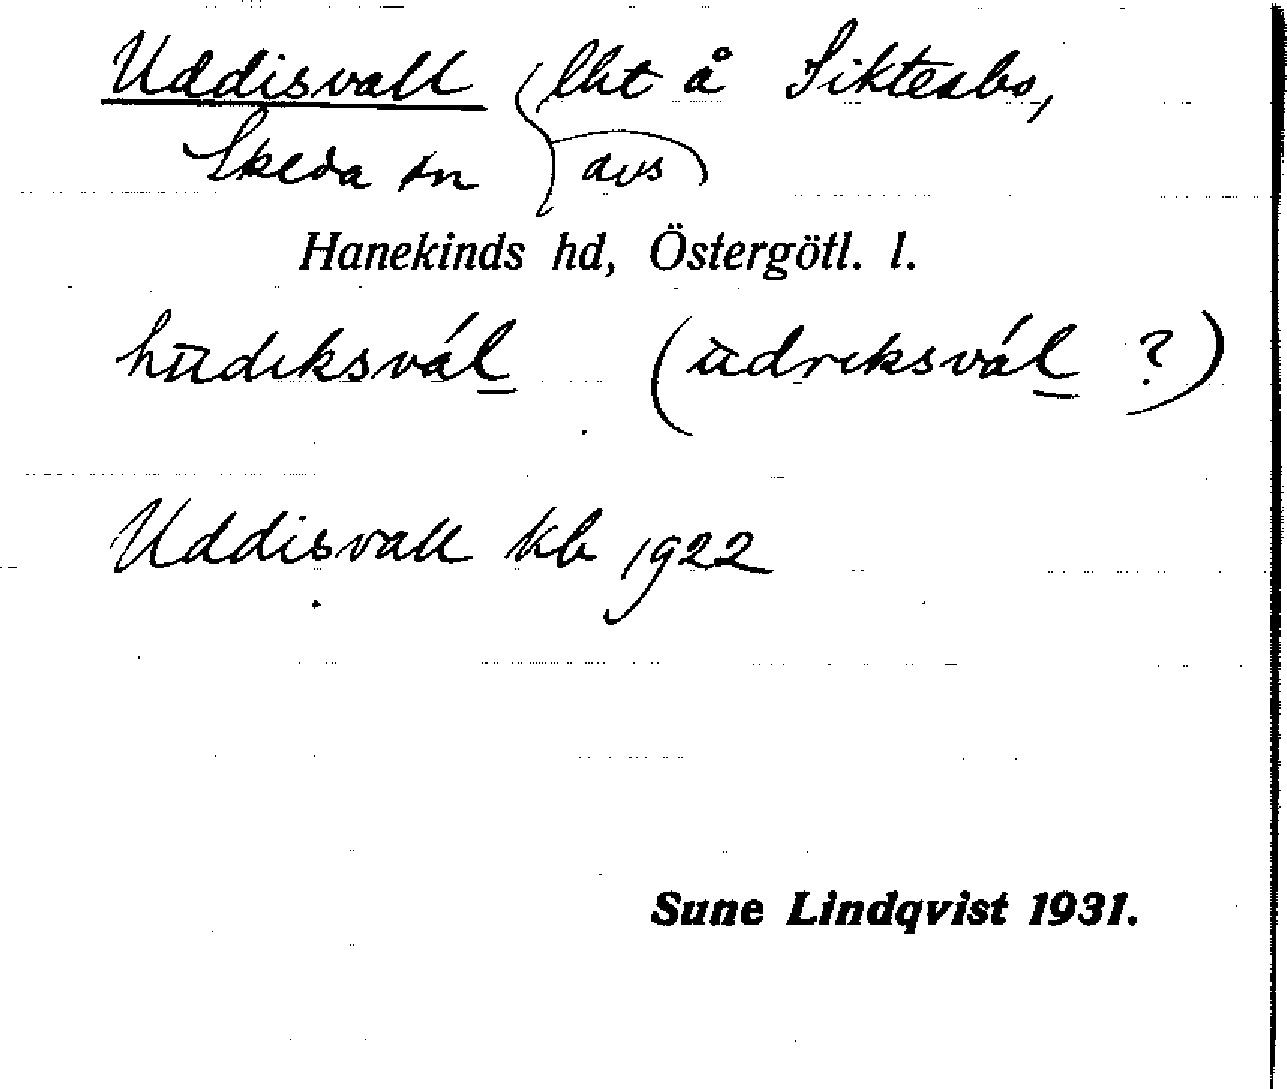 Uddisvall lht å Siktesbo,
Skeda sn avs
Hanekinds hd, Östergötl. l.
hūdıksvál (ùdrıksvál ?)
Uddisvall kb 1922
Sune Lindqvist 1931.